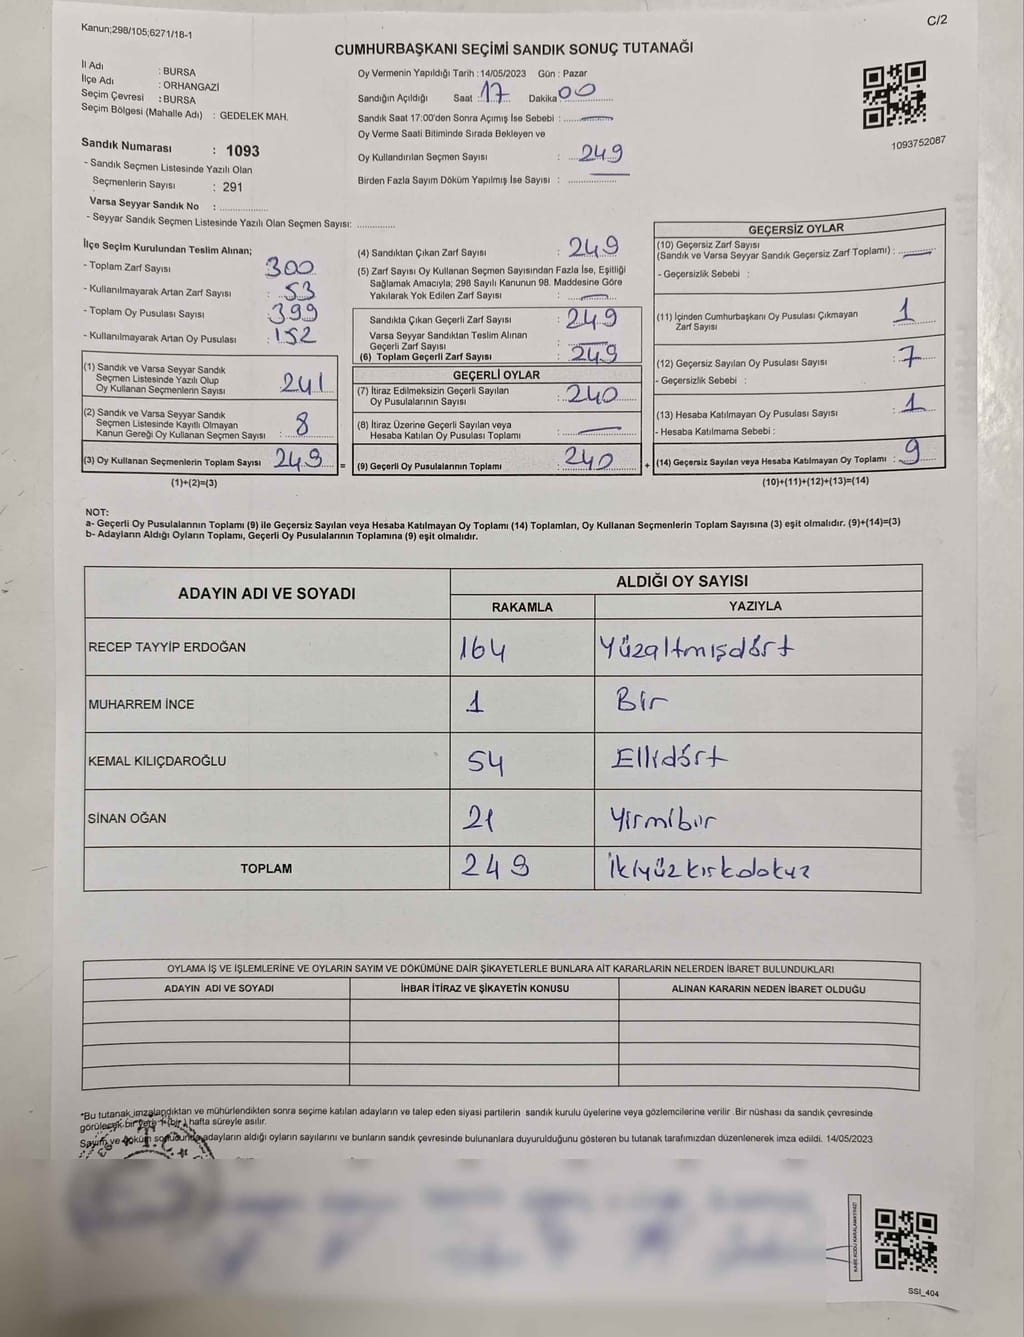 Kanun;298/105;6271/18-1
C/2
CUMHURBAŞKANI SEÇİMİ SANDIK SONUÇ TUTANAĞI
İl Adı : BURSA
İlçe Adı : ORHANGAZİ
Seçim Çevresi : BURSA
Seçim Bölgesi (Mahalle Adı) : GEDELEK MAH.
Sandık Numarası : 1093
- Sandık Seçmen Listesinde Yazılı Olan
Seçmenlerin Sayısı : 291
Varsa Seyyar Sandık No : ..................
- Seyyar Sandık Seçmen Listesinde Yazılı Olan Seçmen Sayısı: ..............
Oy Vermenin Yapıldığı Tarih : 14/05/2023 Gün : Pazar
Sandığın Açıldığı Saat : 17 Dakika 00
Sandık Saat 17:00'den Sonra Açımış İse Sebebi :
Oy Verme Saati Bitiminde Sırada Bekleyen ve
Oy Kullandırılan Seçmen Sayısı : 249
Birden Fazla Sayım Döküm Yapılmış İse Sayısı : ..................
1093752087
İlçe Seçim Kurulundan Teslim Alınan;
- Toplam Zarf Sayısı 300
- Kullanılmayarak Artan Zarf Sayısı : 53
- Toplam Oy Pusulası Sayısı : 399
- Kullanılmayarak Artan Oy Pusulası : 152
(1) Sandık ve Varsa Seyyar Sandık
Seçmen Listesinde Yazılı Olup
Oy Kullanan Seçmenlerin Sayısı : 241
(2) Sandık ve Varsa Seyyar Sandık
Seçmen Listesinde Kayıtlı Olmayan
Kanun Gereği Oy Kullanan Seçmen Sayısı : 8
(3) Oy Kullanan Seçmenlerin Toplam Sayısı 249 =
(1)+(2)=(3)
(4) Sandıktan Çıkan Zarf Sayısı : 249
(5) Zarf Sayısı Oy Kullanan Seçmen Sayısından Fazla İse, Eşitliği
Sağlamak Amacıyla; 298 Sayılı Kanunun 98. Maddesine Göre
Yakılarak Yok Edilen Zarf Sayısı :
Sandıkta Çıkan Geçerli Zarf Sayısı : 249
Varsa Seyyar Sandıktan Teslim Alınan
Geçerli Zarf Sayısı :
(6) Toplam Geçerli Zarf Sayısı : 249
GEÇERLİ OYLAR
(7) İtiraz Edilmeksizin Geçerli Sayılan
Oy Pusulalarının Sayısı : 240
(8) İtiraz Üzerine Geçerli Sayılan veya
Hesaba Katılan Oy Pusulası Toplamı :
(9) Geçerli Oy Pusulalarının Toplamı : 240 +
GEÇERSİZ OYLAR
(10) Geçersiz Zarf Sayısı
(Sandık ve Varsa Seyyar Sandık Geçersiz Zarf Toplamı) :
- Geçersizlik Sebebi :
(11) İçinden Cumhurbaşkanı Oy Pusulası Çıkmayan
Zarf Sayısı : 1
(12) Geçersiz Sayılan Oy Pusulası Sayısı : 7
- Geçersizlik Sebebi :
(13) Hesaba Katılmayan Oy Pusulası Sayısı : 1
- Hesaba Katılmama Sebebi :
(14) Geçersiz Sayılan veya Hesaba Katılmayan Oy Toplamı : 9
(10)+(11)+(12)+(13)=(14)
NOT:
a- Geçerli Oy Pusulalarının Toplamı (9) ile Geçersiz Sayılan veya Hesaba Katılmayan Oy Toplamı (14) Toplamları, Oy Kullanan Seçmenlerin Toplam Sayısına (3) eşit olmalıdır. (9)+(14)=(3)
b- Adayların Aldığı Oyların Toplamı, Geçerli Oy Pusulalarının Toplamına (9) eşit olmalıdır.
ADAYIN ADI VE SOYADI
ALDIĞI OY SAYISI
RAKAMLA YAZIYLA
RECEP TAYYİP ERDOĞAN 164 Yüzaltmışdört
MUHARREM İNCE 1 Bir
KEMAL KILIÇDAROĞLU 54 Ellidört
SİNAN OĞAN 21 Yirmibir
TOPLAM 249 İkiyüzkırkdokuz
OYLAMA İŞ VE İŞLEMLERİNE VE OYLARIN SAYIM VE DÖKÜMÜNE DAİR ŞİKAYETLERLE BUNLARA AİT KARARLARIN NELERDEN İBARET BULUNDUKLARI
ADAYIN ADI VE SOYADI İHBAR İTİRAZ VE ŞİKAYETİN KONUSU ALINAN KARARIN NEDEN İBARET OLDUĞU
*Bu tutanak imzalandıktan ve mühürlendikten sonra seçime katılan adayların ve talep eden siyasi partilerin sandık kurulu üyelerine veya gözlemcilerine verilir .Bir nüshası da sandık çevresinde
görülecek bir yere 1 (bir) hafta süreyle asılır.
Sayım ve döküm sonucunda adayların aldığı oyların sayılarını ve bunların sandık çevresinde bulunanlara duyurulduğunu gösteren bu tutanak tarafımızdan düzenlenerek imza edildi. 14/05/2023
T.C.
SSI_404